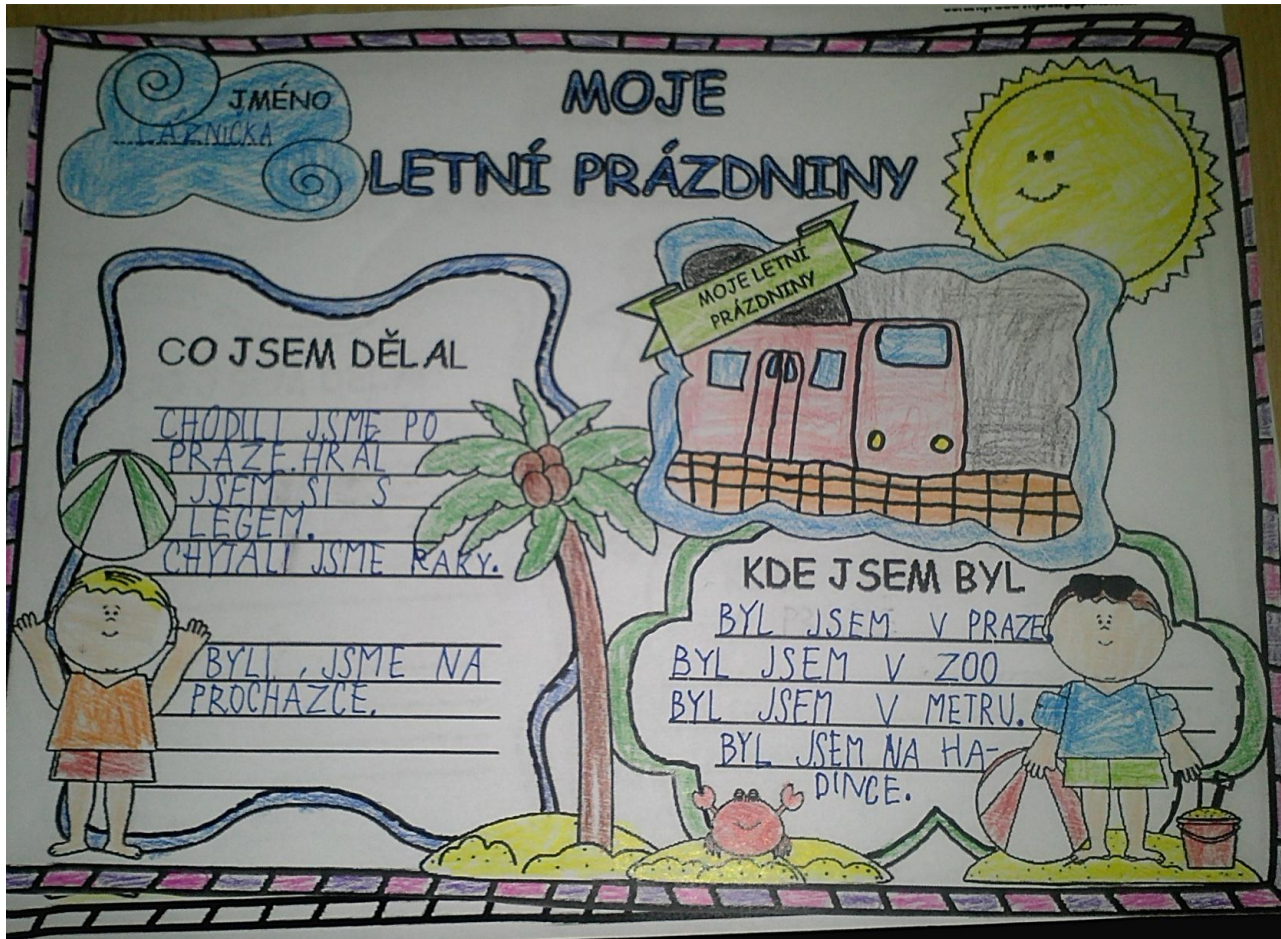 JMÉNO
LÁZNIČKA
MOJE
LETNÍ PRÁZDNINY
MOJE LETNÍ
PRÁZDNINY
CO JSEM DĚLAL
CHODILI JSME PO
PRAZE.HRÁL
JSEM SI S
LEGEM.
CHYTALI JSME RAKY.
BYLI JSME NA
PROCHÁZCE.
KDE JSEM BYL
BYL JSEM V PRAZE
BYL JSEM V ZOO
BYL JSEM V METRU.
BYL JSEM NA HA-
DINCE.